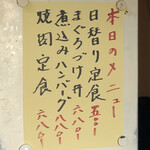 本日のメニュー
日替り定食 五〇〇-
まぐろづけ丼 六八〇-
煮込みハンバーグ 八八〇-
焼肉定食 六八〇-